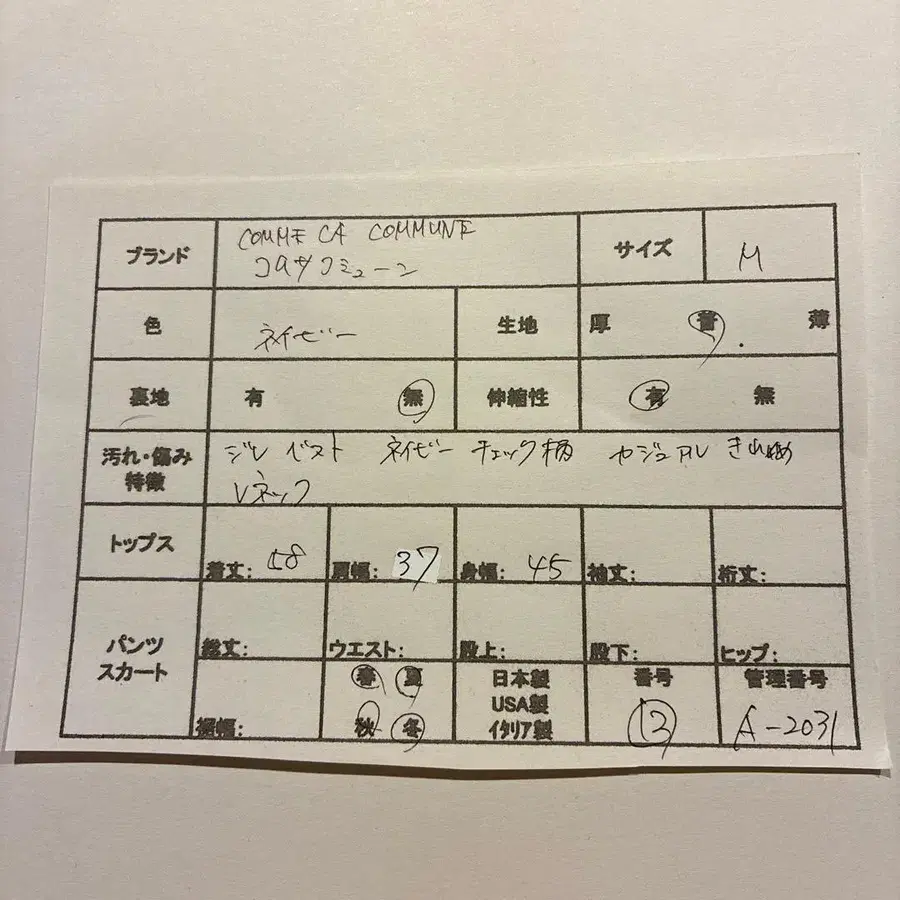 ブランド COMME CA COMMUNE サイズ M
コムサコミューン
色 ネイビー 生地 厚 普 薄
裏地 有 無 伸縮性 有 無
汚れ・傷み ジレ ベスト ネイビー チェック柄 カジュアル きれいめ
特徴 Vネック
トップス 着丈: 58 肩幅: 37 身幅: 45 袖丈: 裄丈:
パンツ 総丈: ウエスト: 股上: 股下: ヒップ:
スカート 裾幅: 春 夏 日本製 番号 管理番号
USA製
秋 冬 イタリア製 13 A-2031